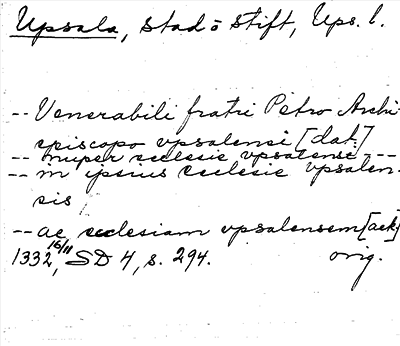 Upsala, stad o stift, Ups. l.
-- Venerabili fratri Petro Archi-
episcopo vpsalensi [dat.]
-- nuper ecclesie vpsalensi --
-- m ipsius ecclesie vpsalen-
sis
-- ac ecclesiam vpsalensem [ack]
1332 16/11, SD 4, s. 294. orig.